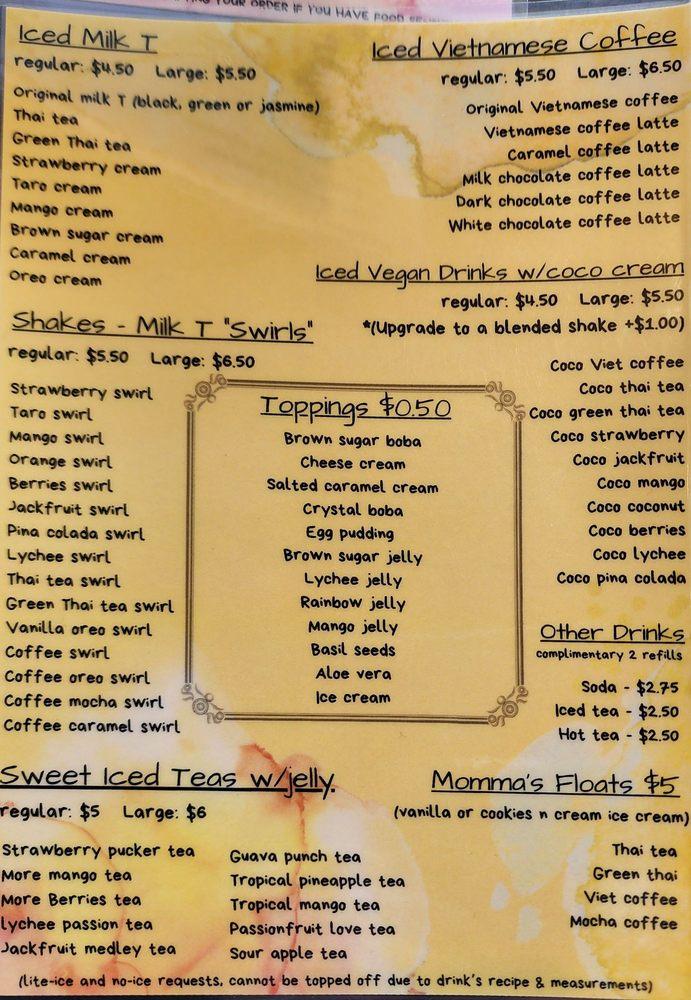 YOUR ORDER IF YOU HAVE FOOD
Iced Milk T
regular: $4.50 Large: $5.50
Original milk T (black, green or jasmine)
Thai tea
Green Thai tea
Strawberry cream
Taro cream
Mango cream
Brown sugar cream
Caramel cream
Oreo cream
Iced Vietnamese Coffee
regular: $5.50 Large: $6.50
Original Vietnamese coffee
Vietnamese coffee latte
Caramel coffee latte
Milk chocolate coffee latte
Dark chocolate coffee latte
White chocolate coffee latte
Iced Vegan Drinks w/coco cream
regular: $4.50 Large: $5.50
*(Upgrade to a blended shake +$1.00)
Coco Viet coffee
Coco thai tea
Coco green thai tea
Coco strawberry
Coco jackfruit
Coco mango
Coco coconut
Coco berries
Coco lychee
Coco pina colada
Shakes - Milk T "Swirls"
regular: $5.50 Large: $6.50
Strawberry swirl
Taro swirl
Mango swirl
Orange swirl
Berries swirl
Jackfruit swirl
Pina colada swirl
Lychee swirl
Thai tea swirl
Green Thai tea swirl
Vanilla oreo swirl
Coffee swirl
Coffee oreo swirl
Coffee mocha swirl
Coffee caramel swirl
Toppings $0.50
Brown sugar boba
Cheese cream
Salted caramel cream
Crystal boba
Egg pudding
Brown sugar jelly
Lychee jelly
Rainbow jelly
Mango jelly
Basil seeds
Aloe vera
Ice cream
Other Drinks
complimentary 2 refills
Soda - $2.75
Iced tea - $2.50
Hot tea - $2.50
Sweet Iced Teas w/jelly
regular: $5 Large: $6
Strawberry pucker tea
More mango tea
More Berries tea
lychee passion tea
Jackfruit medley tea
Guava punch tea
Tropical pineapple tea
Tropical mango tea
Passionfruit love tea
Sour apple tea
Momma's Floats $5
(vanilla or cookies n cream ice cream)
Thai tea
Green thai
Viet coffee
Mocha coffee
(lite-ice and no-ice requests, cannot be topped off due to drink's recipe & measurements)